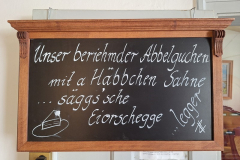 Unser beriehmder Abbelguchen
mit a Häbbchen Sahne
... säggs'sche
Eiorschegge ... legger